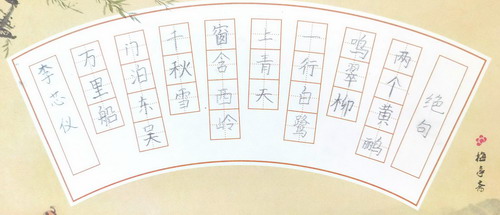 绝句
两个黄鹂
鸣翠柳
一行白鹭
上青天
窗含西岭
千秋雪
门泊东吴
万里船
李芯仪